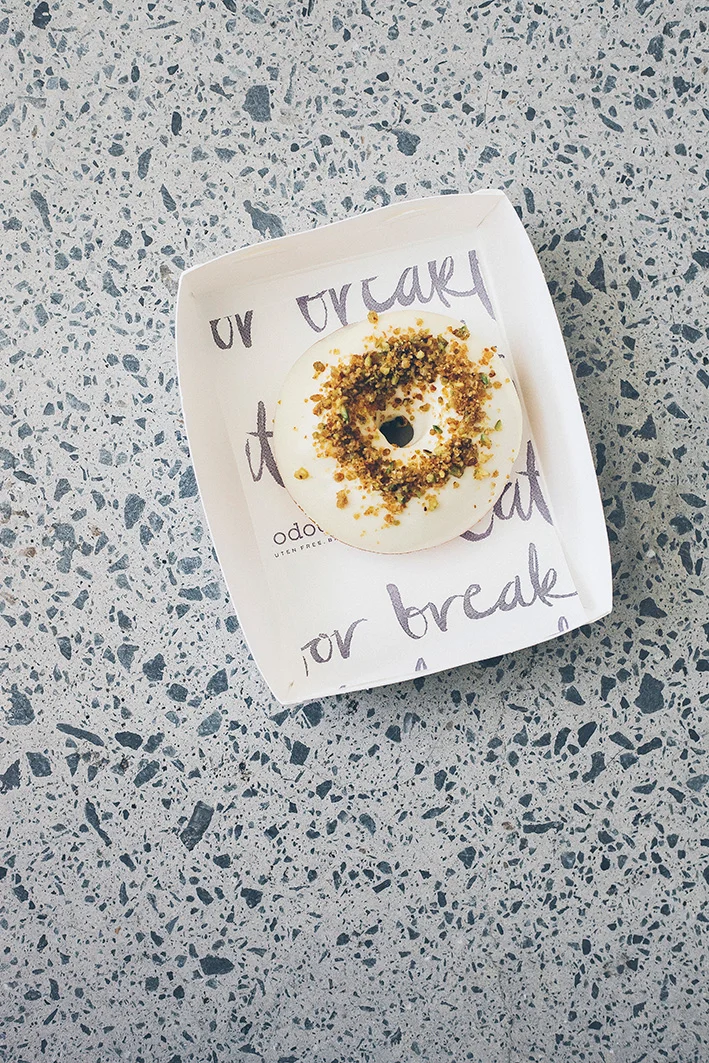 or break
it
eat
odo
UTEN FREE.
or break